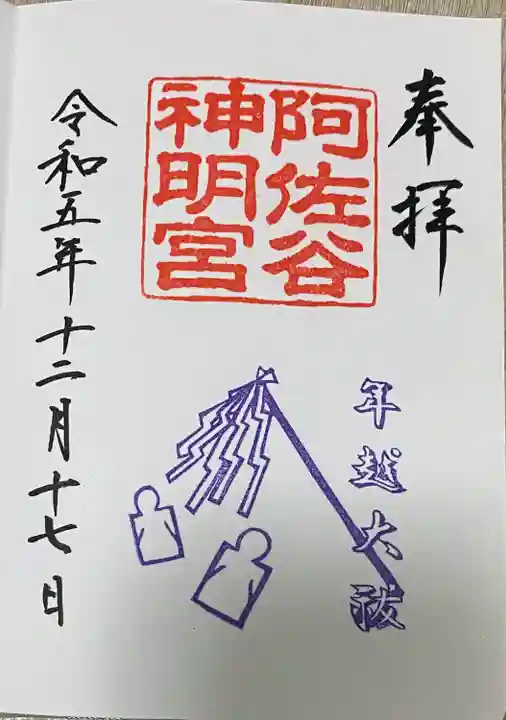 奉拝
阿佐谷
神明宮
年越大祓
令和五年十二月十七日